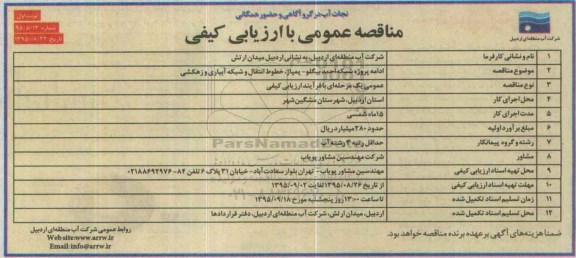 نجات آب در گرو آگاهی و حضور همگانی
مناقصه عمومی با ارزیابی کیفی
نوبت اول
شرکت آب منطقه‌ای اردبیل
۱ نام و نشانی کارفرما شرکت آب منطقه‌ای اردبیل، به نشانی اردبیل میدان ارتش
۲ موضوع مناقصه ادامه پروژه شبکه احمد بیگلو - پمپاژ، خطوط انتقال و شبکه آبیاری و زهکشی
۳ نوع مناقصه عمومی یک مرحله‌ای با فرآیند ارزیابی کیفی
۴ محل اجرای کار استان اردبیل، شهرستان مشگین شهر
۵ مدت اجرای کار ۱۵ ماه شمسی
۶ مبلغ برآورد اولیه حدود ۲۸۰ میلیارد ریال
۷ رشته و گروه پیمانکار حداقل رتبه ۳ رشته آب
۸ مشاور شرکت مهندسین مشاور پویاب
۹ محل تهیه اسناد ارزیابی کیفی مهندسین مشاور پویاب - تهران بلوار سعادت آباد - خیابان ۳۱ پلاک ۶ تلفن ۸۴-۰۲۱۸۸۶۹۲۹۷۶
۱۰ مهلت تهیه اسناد ارزیابی کیفی از تاریخ ۱۳۹۵/۰۸/۲۶ لغایت ۱۳۹۵/۰۹/۰۲
۱۱ زمان تسلیم اسناد تکمیل شده تا ساعت ۱۳:۰۰ روز پنجشنبه مورخ ۱۳۹۵/۰۹/۱۸
۱۲ محل تسلیم اسناد تکمیل شده اردبیل، میدان ارتش، شرکت آب منطقه‌ای اردبیل، دفتر قراردادها
ضمنا هزینه‌های آگهی بر عهده برنده مناقصه خواهد بود.
روابط عمومی شرکت آب منطقه‌ای اردبیل
Web site:www.arrw.ir
Email:info@arrw.ir